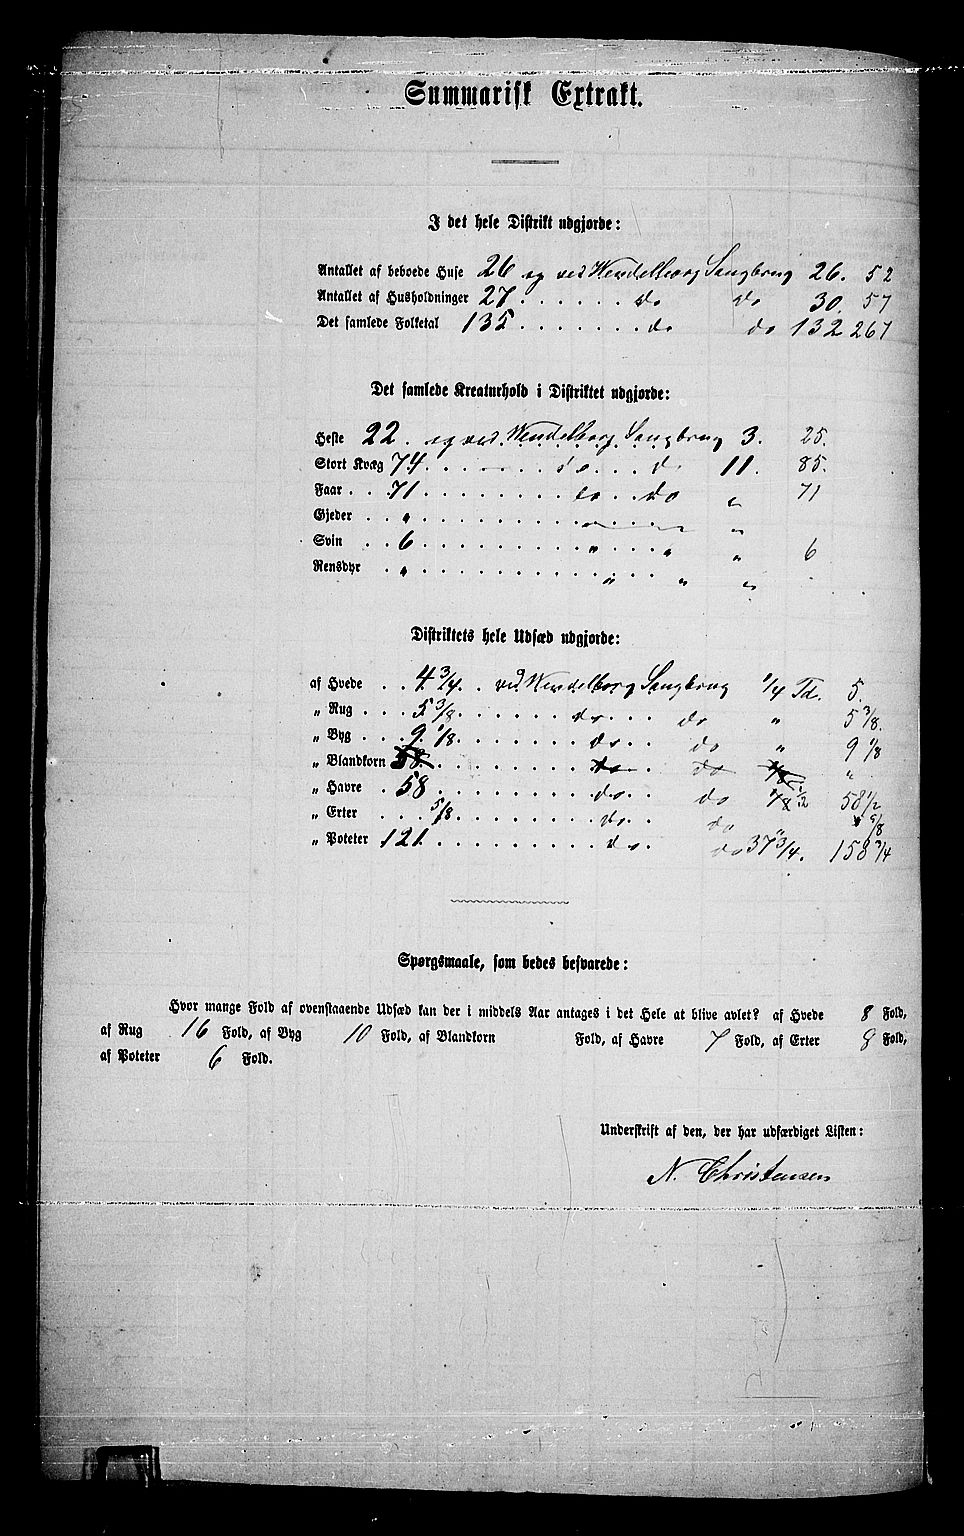 Summarisk Extrakt.
I det hele Distrikt udgjorde:
Antallet af beboede Huse 26 og ved Wendelborg Saugbrug 26. 52
Antallet af Husholdninger 27 . . . . . . do do 30. 57
Det samlede Folketal 135 . . . . . . . do do 132 267
Det samlede Kreaturhold i Distriktet udgjorde:
Heste 22. og ved Wendelborg Saugbrug 3. 25.
Stort Kvæg 74 . . . . . do . . . do 11. 85.
Faar . . . 71 . . . . . . . . do . . . do „ 71
Gjeder . . „ . . . . . . . . . . . . . „
Svin . . 6 . . . . . . . . „ . . . „ „ 6
Rensdyr . „ . . . . . . . . „ . . „ „
Distriktets hele Udsæd udgjorde:
af Hvede . . 4 3/4 . . ved Wendelborg Saugbrug 1/4 Td. 5.
„ Rug . . . 5 3/8 . . . . . . . do . . do „ 5 3/8.
„ Byg . . . 9 1/8 . . . . . . . do . . do „ 9 1/8
„ Blandkorn 58 . . . . . . . . do . do „
„ Havre . 58 . . . . . . . . do . . do 1/2 58 1/2
„ Erter . . . . 5/8 . . . . . . . do . . do 5/8
„ Poteter 121 . . . . . . . . . do . do 37 3/4. 158 3/4
Spørgsmaale, som bedes besvarede:
Hvor mange Fold af ovenstaaende Udsæd kan der i middels Aar antages i det Hele at blive avlet? af Hvede 8 Fold,
af Rug 16 Fold, af Byg 10 Fold, af Blandkorn Fold, af Havre 7 Fold, af Erter 8 Fold,
af Poteter 6 Fold.
Underskrift af den, der har udfærdiget Listen:
N. Christensen